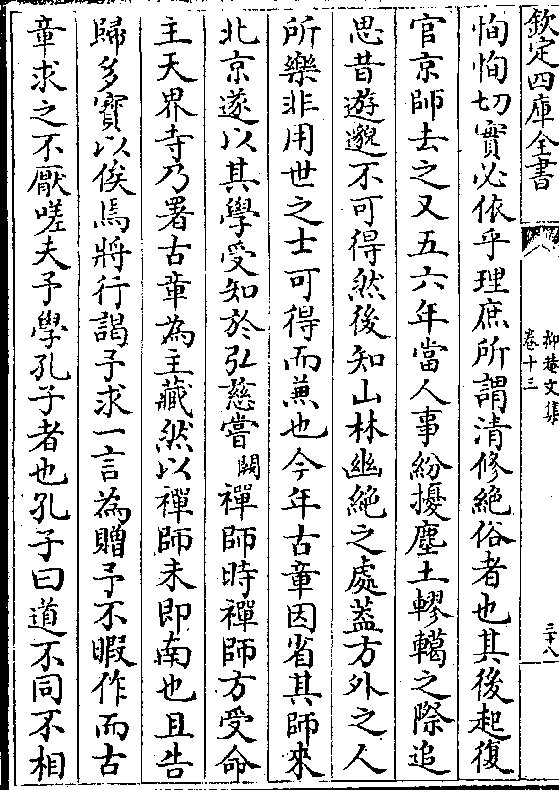 欽定四庫全書
抑菴文集
卷十三
三十八
恂恂切實必依乎理庶所謂清修絶俗者也其後起復
官京師去之又五六年當人事紛擾塵土轇轕之際追
思昔遊邈不可得然後知山林幽絶之處葢方外之人
所樂非用世之士可得而兼也今年古章因省其師來
北京遂以其學受知於弘慈嘗闕禪師時禪師方受命
主天界寺乃署古章為主藏然以禪師未即南也且告
歸多寳以俟焉將行謁予求一言為贈予不暇作而古
章求之不厭嗟夫予學孔子者也孔子曰道不同不相